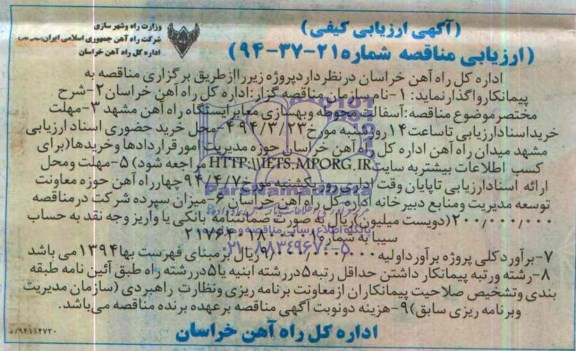 وزارت راه وشهرسازی
شرکت راه آهن جمهوری اسلامی ایران
اداره کل راه آهن خراسان
(آگهی ارزیابی کیفی)
(ارزیابی مناقصه شماره ۲۱-۳۷-۹۴)
اداره کل راه آهن خراسان درنظرداردپروژه زیرراازطریق برگزاری مناقصه به
پیمانکارواگذارنماید: ۱-نام سازمان مناقصه گزار:اداره کل راه آهن خراسان ۲-شرح
مختصرموضوع مناقصه:آسفالت محوطه وبهسازی معابرایستگاه راه آهن مشهد ۳-مهلت
خریداسنادارزیابی تاساعت۱۴روزشنبه مورخ۹۴/۳/۲۳ ۴-محل خرید حضوری اسناد ارزیابی
مشهد میدان راه آهن اداره کل راه آهن خراسان حوزه مدیریت امورقراردادها وخریدها(برای
کسب اطلاعات بیشتربه سایت HTTP://IETS.MPORG.IR مراجعه شود) ۵-مهلت ومحل
ارائه اسنادارزیابی تاپایان وقت اداری روزیکشنبه مورخ۹۴/۴/۷چهارراه آهن حوزه معاونت
توسعه مدیریت ومنابع دبیرخانه اداره کل راه آهن خراسان ۶-میزان سپرده شرکت درمناقصه
۲۰۰,۰۰۰,۰۰۰(دویست میلیون)ریال به صورت ضمانتنامه بانکی یا واریز وجه نقد به حساب
سیبا به شماره
۷-برآوردکلی پروژه برآورداولیه ریال برمبنای فهرست بها۱۳۹۴ می باشد
۸-رشته ورتبه پیمانکار داشتن حداقل رتبه۵دررشته ابنیه یا۵دررشته راه طبق آئین نامه طبقه
بندی وتشخیص صلاحیت پیمانکاران ازمعاونت برنامه ریزی ونظارت راهبردی (سازمان مدیریت
وبرنامه ریزی سابق)۹-هزینه دونوبت آگهی مناقصه برعهده برنده مناقصه می‌باشد.
اداره کل راه آهن خراسان